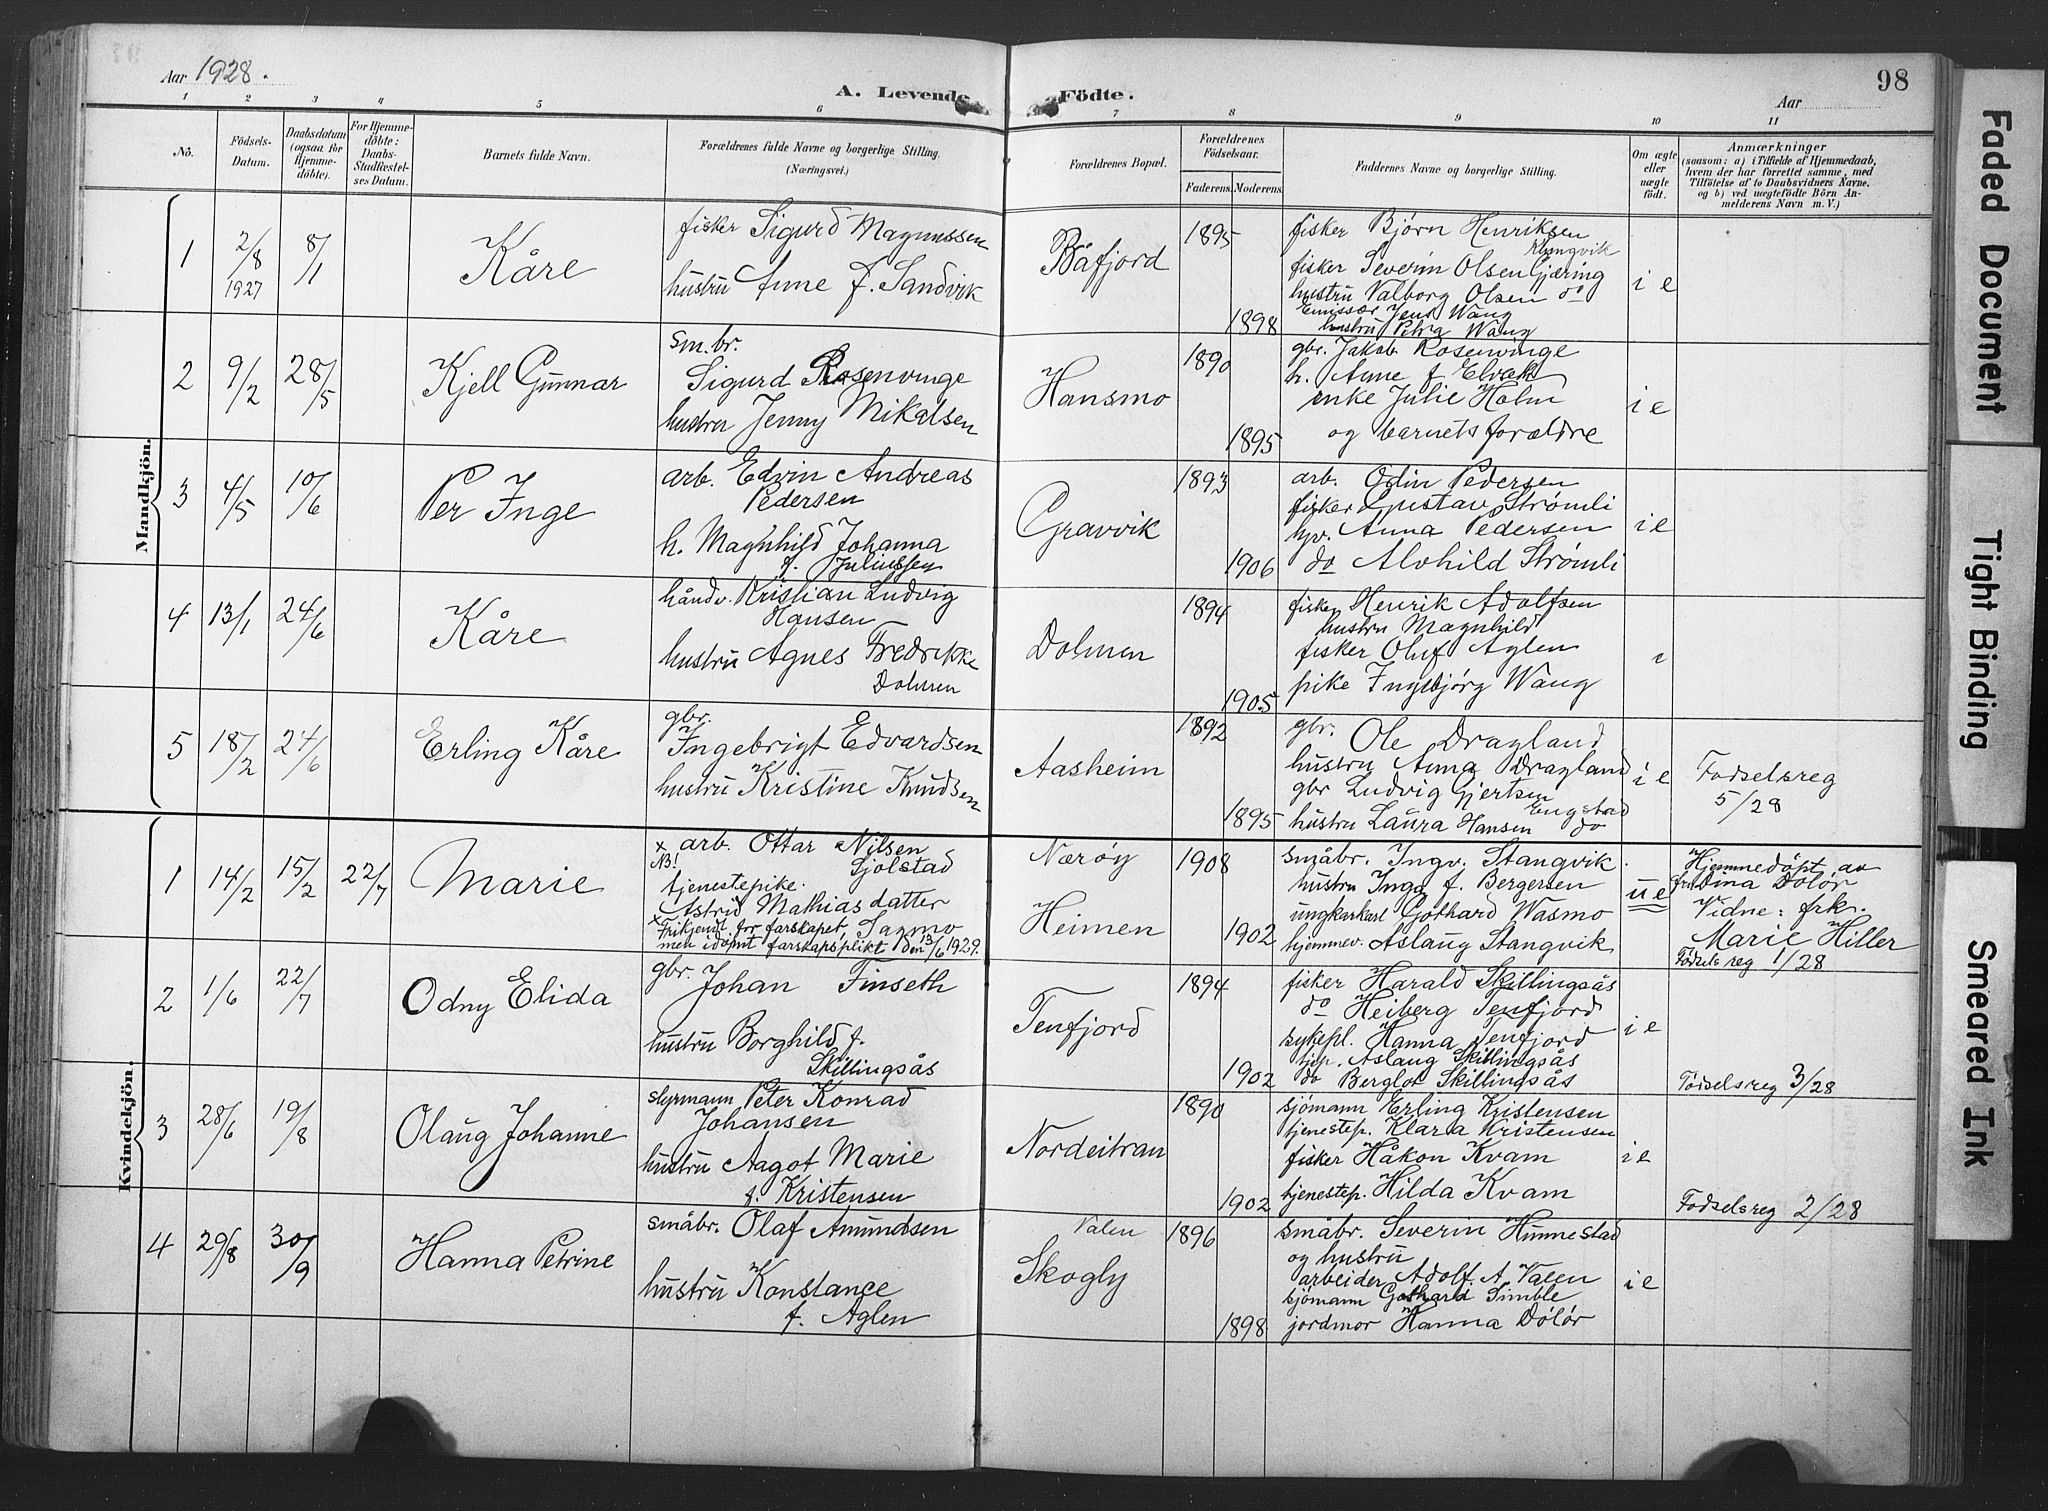 Aar 1928.
A. Levende Födte.
98
Aar
1 2 3 4 5 6 7 8 9 10 11
No.
Födsels-
Datum.
Daabsdatum
(ogsaa for
Hjemme-
döbte).
For Hjemme-
döbte:
Daabs-
Stadfæstel-
ses Datum.
Barnets fulde Navn.
Forældrenes fulde Navne og borgerlige Stilling.
(Næringsvei.)
Forældrenes Bopæl.
Forældrenes
Födselsaar.
Faderens. Moderens.
Faddernes Navne og borgerlige Stilling.
Om ægte
eller
uægte
födt.
Anmærkninger
(saasom: a) i Tilfælde af Hjemmedaab,
hvem der har forrettet samme, med
Tilföielse af to Daabsvidners Navne,
og b) ved uegtefödte Börn An-
melderens Navn m. V.)
Mandkjön.
1
2/8
1927
8/1
Kåre
fisker Sigurd Magnussen
hustru Anne f. Sandvik
Båfjord
1895
1898
fisker Bjørn Henriksen
Klungvik
fisker Severin Olsen Gjæring
hustru Valborg Olsen do
Emissær Jens Wang
hustru Petra Wang
i e
2
9/2
28/5
Kjell Gunnar
sm.br.
Sigurd Rosenvinge
hustru Jenny Mikalsen
Hansmo
1890
1895
gbr. Jakob Rosenvinge
h. Anne f Elvæk
enke Julie Holm
og barnets forældre
i e
3
4/5
10/6
Per Inge
arb. Edvin Andreas
Pedersen
h. Magnhild Johanna
f. Juliussen
Gravvik
1893
1906
arb. Odin Pedersen
fisker Gustav Strømli
hv. Anna Pedersen
do Alvhild Strømli
i e
4
13/1
24/6
Kåre
håndv. Kristian Ludvig
Hansen
hustru Agnes Fredrikke
Dolmen
Dolmen
1894
1905
fisker Henrik Adolfsen
hustru Magnhild
fisker Oluf Aglen
pike Ingebjørg Wang
i
5
18/2
24/6
Erling Kåre
gbr.
Ingebrigt Edvardsen
hustru Kristine Knudsen
Aasheim
1892
1895
gbr. Ole Dragland
hustru Anna Dragland
gbr Ludvig Gjertsen
Engstad
hustru Laura Hansen do
i e
Fødselsreg
5/28
Kvindekjön.
1
14/2
15/2
22/7
Marie
x arb. Ottar Nilsen
NB! Sjölstad
tjenestepike.
Astrid Mathiasdatter
x Frikjendt for farskapet, Sagmo
men idömt farskapsplikt den 13/6 1929.
Nærøy
Heimen
1908
1902
småbr. Ingv. Stangvik.
hustru Inga f. Bergersen
ungkarkarl Gothard Wasmo
hjemmev. Aslaug Stangvik
u e
Hjemmedöpt av
fru Dina Dölör
Vidne: frk.
Marie Hiller
Födsels reg 1/28
2
1/6
22/7
Odny Elida
gbr. Johan Finseth
hustru Borghild f.
Skillingsås
Tenfjord
1894
1902
fisker Harald Skillingsås
do Heiberg Tenfjord
sykepl. Hanna Tenfjord
tjp. Aslaug Skillingsås
do Berglot Skillingsås
i e
Födselsreg 3/28
3
28/6
19/8
Olaug Johanne
styrmann Peter Konrad
Johansen
hustru Aagot Marie
f. Kristensen
Nordeitran
1890
1902
sjömann Erling Kristensen
tjenestep. Klara Kristensen
fisker Håkon Kvam
tjenestep. Hilda Kvam
i e
Fødselsreg 2/28
4
29/8
30/9
Hanna Petrine
småbr. Olaf Amundsen
hustru Konstance
f. Aglen
Valen
Skogly
1896
1898
småbr. Severin Hunnestad
og hustru
arbeider Adolf. A. Valen
sjömann Gothard Simble
jordmor Hanna Dölör
i e
Faded Document
Tight Binding
Smeared Ink